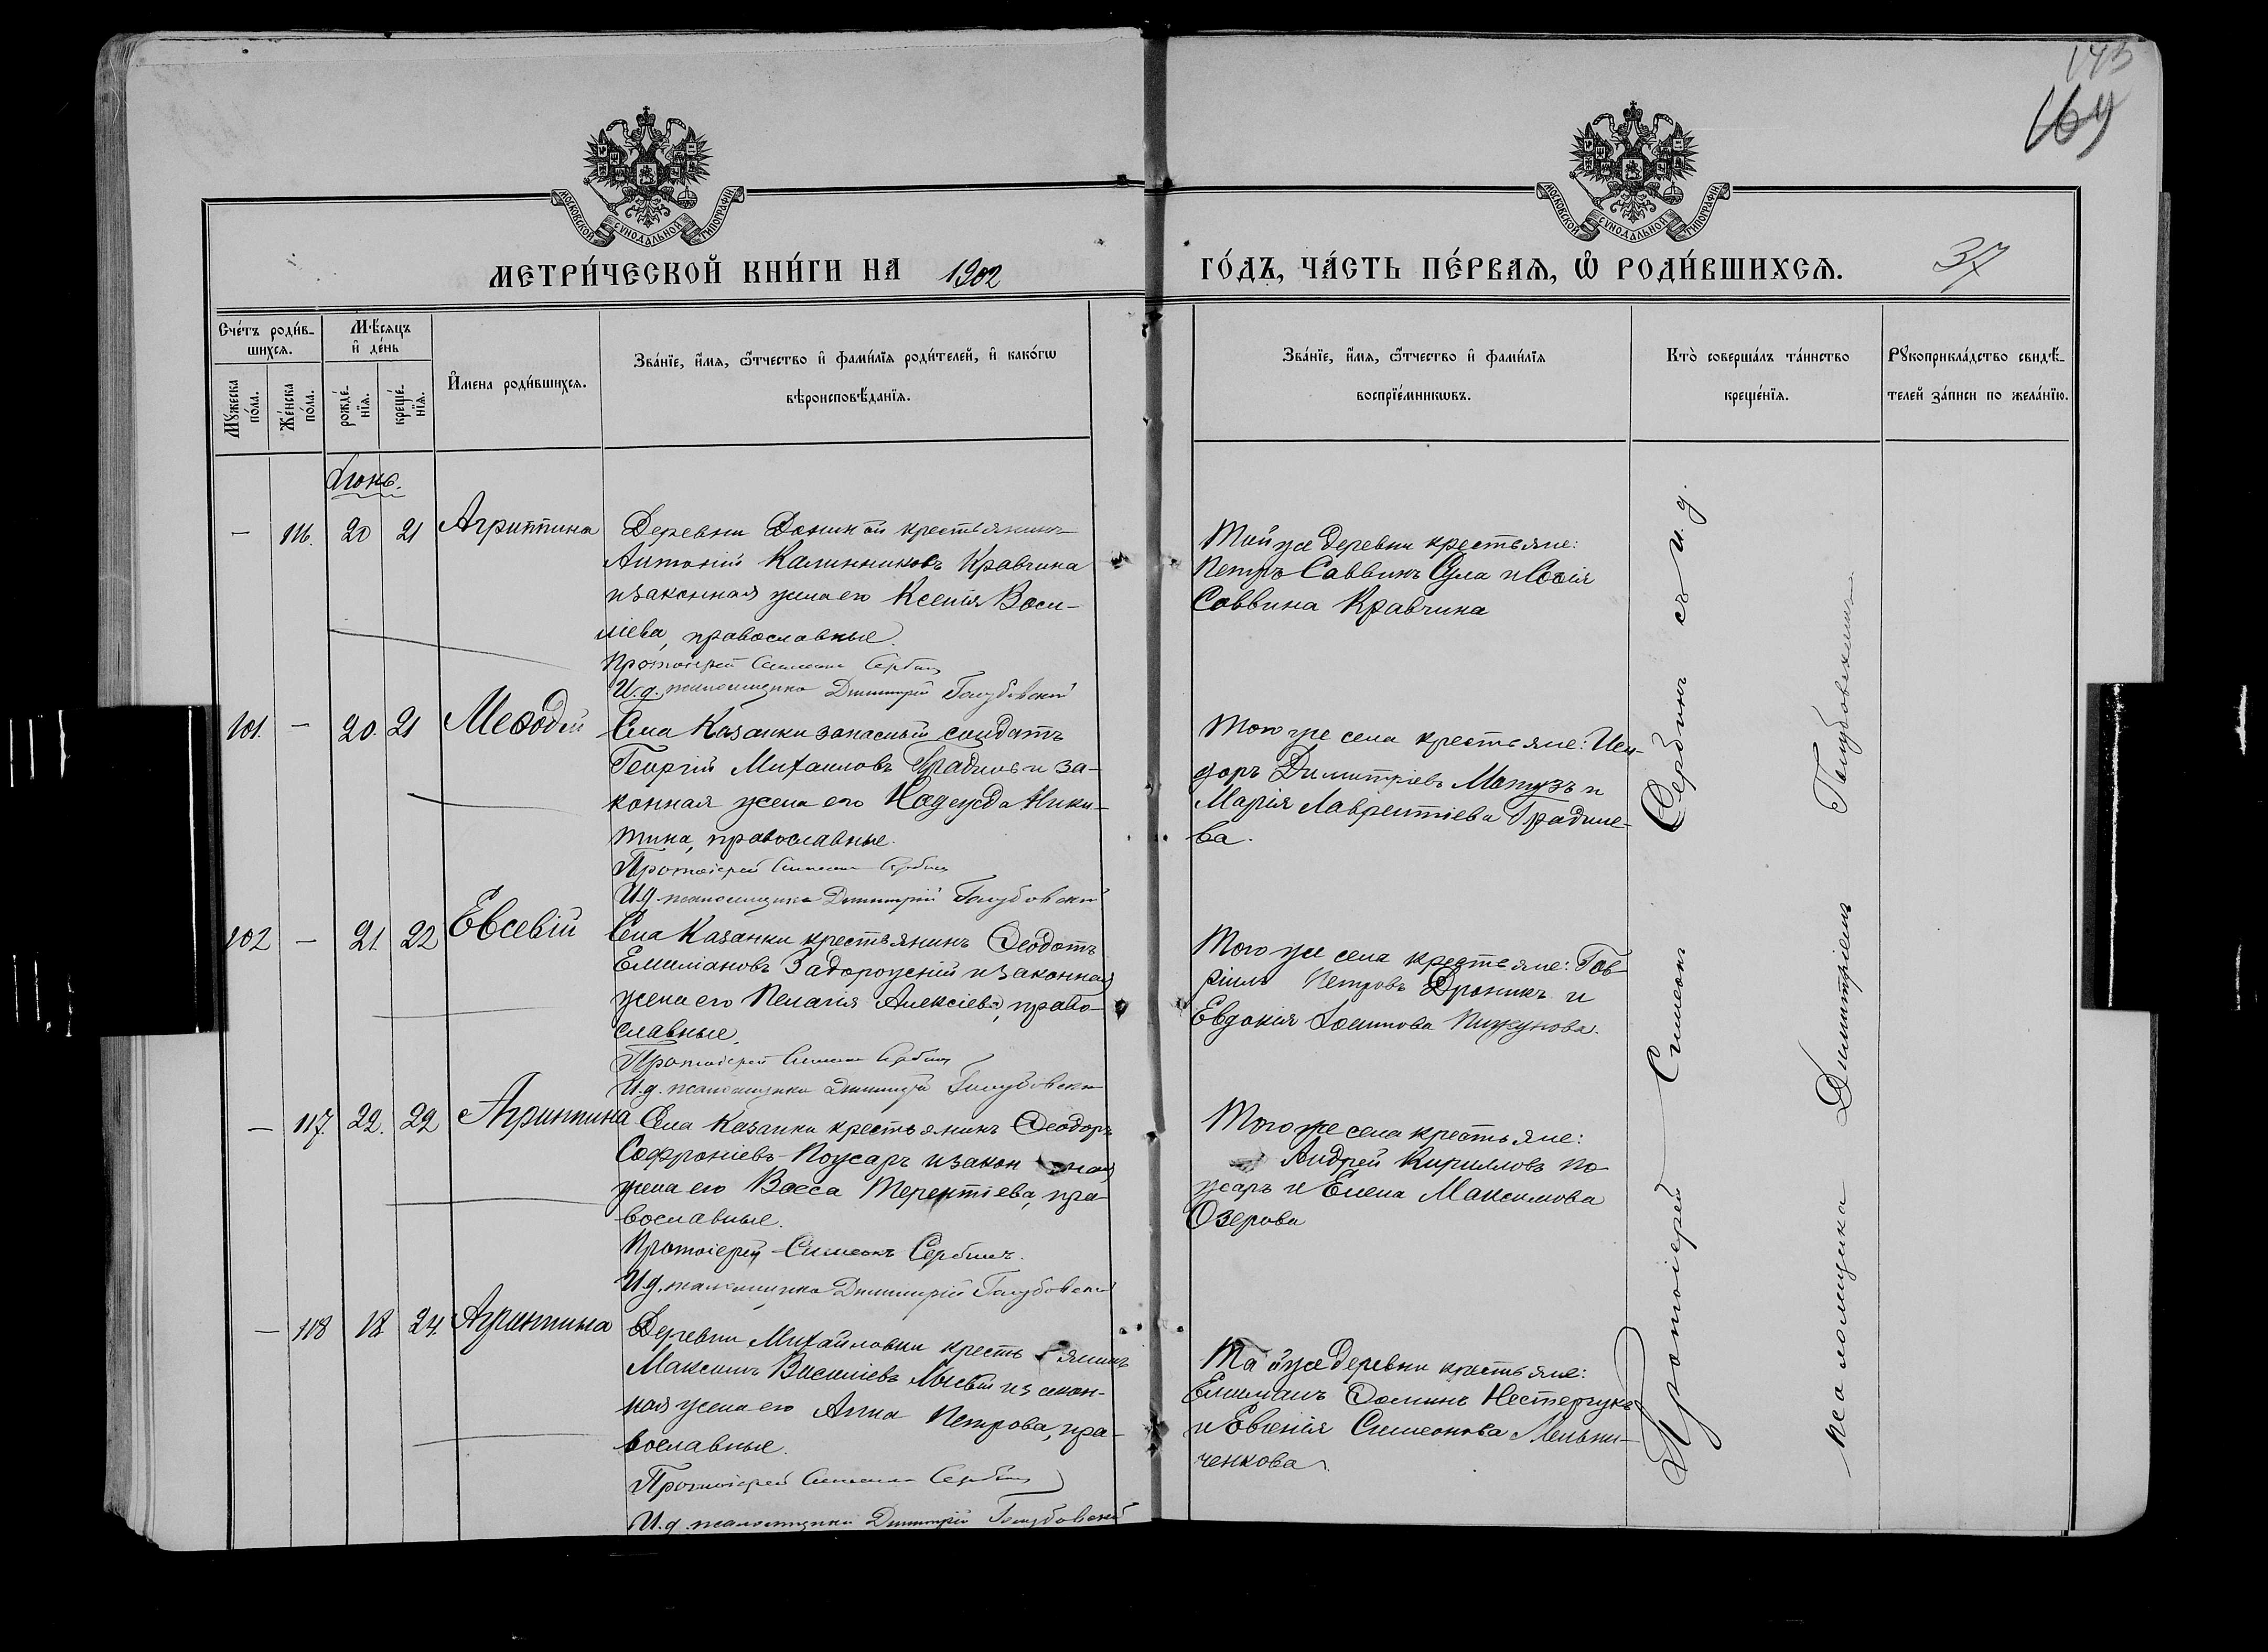 143
169
МОСКОВСКОЙ СѴНОДАЛЬНОЙ ТИПОГРАФІИ
МОСКОВСКОЙ СѴНОДАЛЬНОЙ ТИПОГРАФІИ
МЕТРИ́ЧЕСКОЙ КНИ́ГИ НА 1902
ГО́ДЪ, ЧА́СТЬ ПЕ́РВАѦ, Ѽ РОДИ́ВШИХСѦ.
37
Сче́тъ роди́в-
шихсѧ.
Мꙋ́жеска
по́ла.
Же́нска
по́ла.
Мѣ́сѧцъ
и҆ де́нь
рожде́-
нїѧ.
креще́-
нїѧ.
И҆мена роди́вшихсѧ.
Зва́нїе, и҆́мѧ, ѻ҆́тчество и҆ фами́лїѧ роди́телей, и҆ како́гѡ
вѣроисповѣ́данїѧ.
Зва́нїе, и҆́мѧ, ѻ҆́тчество и҆ фами́лїѧ
воспрїе́мникѡвъ.
Кто̀ соверша́лъ та́инство
креще́нїѧ.
Рꙋкоприкла́дство свидѣ́-
телей за́писи по жела́нїю.
Іюнь.
— 116. 20 21 Агриппина
Деревни Доникой крестьянинъ
Антоній Калинниковъ Кравчина
и законная жена его Ксенія Васи-
ліева, православные.
Протоіерей Симеонъ Сербинъ
И. д. псаломщика Димитрій Голубовскій
Той же деревни крестьяне:
Петръ Саввинъ Сула и Софія
Саввина Кравчина
101. — 20. 21 Меѳодій
Села Казанки запасный солдатъ
Георгій Михаиловъ Градиловъ и за-
конная жена его Надежда Ники-
тина, православные.
Протоіерей Симеонъ Сербинъ
И. д. псаломщика Димитрій Голубовскій
Того же села крестьяне: Иси-
доръ Димитріевъ Мотузъ и
Марія Лаврентіева Градиле-
ва.
102 — 21. 22 Евсевій
Села Казанки крестьянинъ Ѳеодотъ
Емиліановъ Задорожній и законная
жена его Пелагія Алексіева, право-
славные.
Протоіерей Симеонъ Сербинъ
И. д. псаломщика Димитрій Голубовскій
Того же села крестьяне: Гав-
ріилъ Петровъ Дроникъ и
Евдокія Пижунова.
— 117. 22. 22 Агриппина
Села Казанки крестьянинъ Ѳеодоръ
Софроніевъ Пожаръ и законная
жена его Васса Терентіева, пра-
вославные.
Протоіерей Симеонъ Сербинъ.
И. д. псаломщика Димитрій Голубовскій
Того же села крестьяне:
Андрей Кирилловъ По-
жаръ и Елена Максимова
Озерова
— 118 18 24. Агриппина
Деревни Михайловки крестьянинъ
Максимъ Василіевъ и закон-
ная жена его Анна Петрова, пра-
вославные.
Протоіерей Симеонъ Сербинъ
И. д. псаломщика Димитрій Голубовскій
Той же деревни крестьяне:
Емиліанъ Ѳоминъ Нестерчукъ
и Евгенія Симеонова Мельни-
ченкова.
Протоіерей Симеонъ Сербинъ съ и. д.
псаломщика Димитріемъ Голубовскимъ